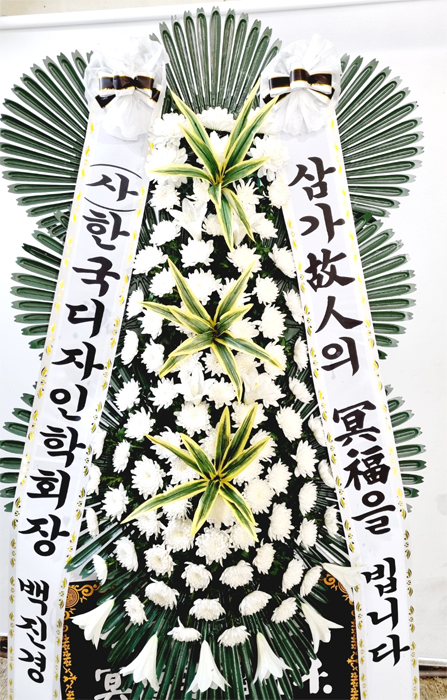 삼가故人의 冥福을 빕니다
(사)한국디자인학회장 백진경
冥